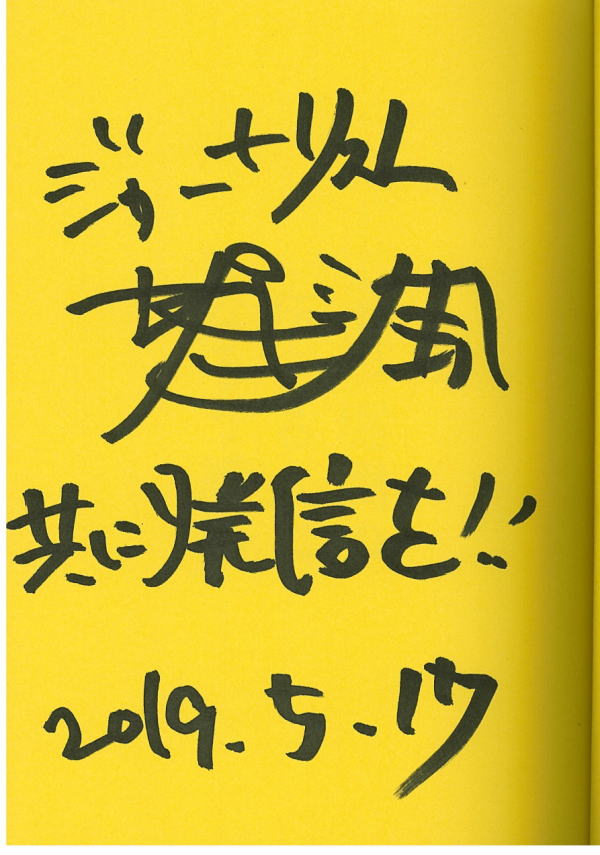 ジャーナリスト
共に発信を!!
2019.5.17